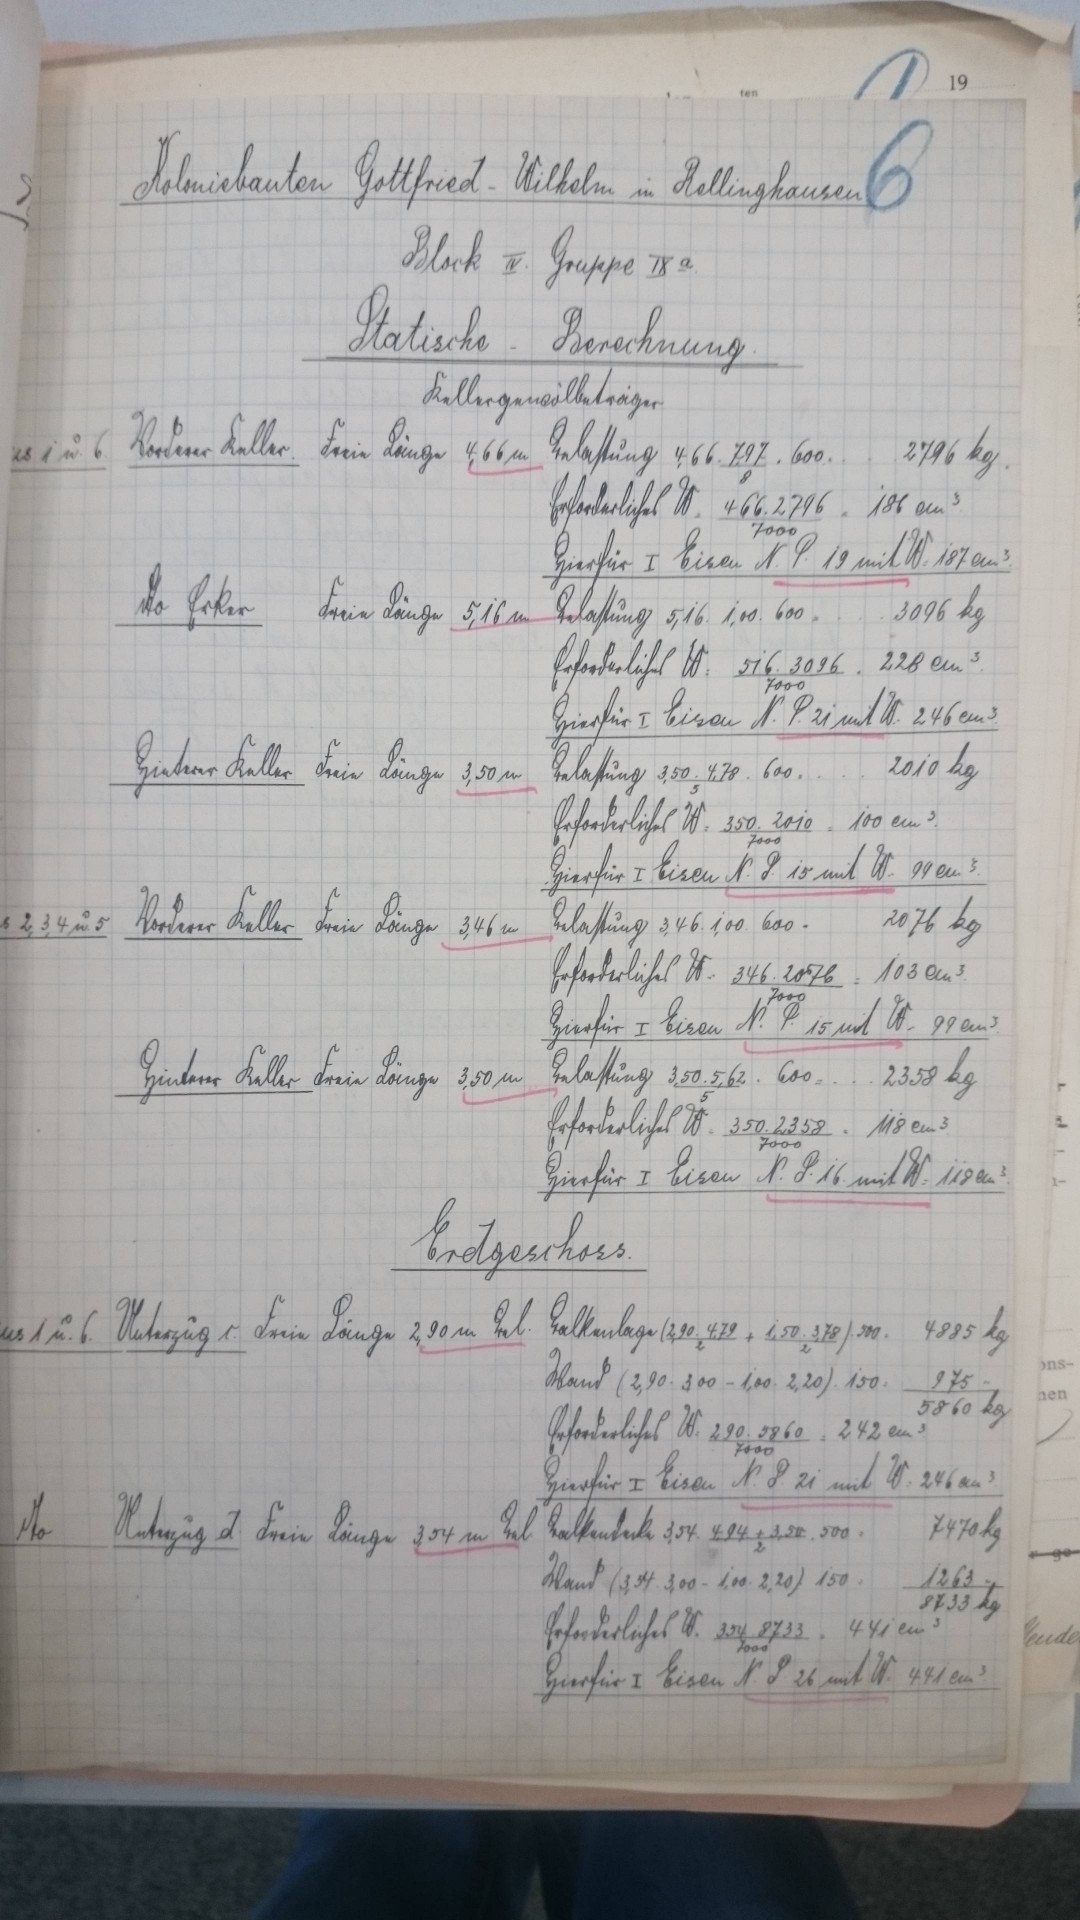 19
ten
6
Koloniebauten Gottfried-Wilhelm in Rellinghausen
Block IV. Gruppe IX a
Statische - Berechnung.
Kellergewölbeträger
us 1 u. 6. Vorderer Keller. Freie Länge 4,66 m Belastung 4,66. 7,97/8 . 600. . . 2796 kg.
Erforderliches W. = 466.2796/7000 = 186 cm³.
Hierfür I Eisen N. P. 19 mit W. 187 cm³.
do Erker Freie Länge 5,16 m Belastung 5,16. 1,00. 600 . . . . 3096 kg
Erforderliches W. = 516. 3096/7000 = 228 cm³.
Hierfür I Eisen N. P. 21 mit W. 246 cm³.
Hinterer Keller Freie Länge 3,50 m Belastung 3,50. 4,78/5 . 600 . . . . 2010 kg
Erforderliches W. = 350. 2010/7000 = 100 cm³.
Hierfür I Eisen N. P. 15 mit W. 99 cm³.
s 2, 3, 4 u. 5 Vorderer Keller Freie Länge 3,46 m Belastung 3,46. 1,00. 600 = 2076 kg
Erforderliches W. = 346. 2076/7000 = 103 cm³.
Hierfür I Eisen N. P. 15 mit W. 99 cm³.
Hinterer Keller Freie Länge 3,50 m Belastung 3,50. 5,62/5 . 600 = . . . 2358 kg
Erforderliches W. = 350. 2358/7000 = 118 cm³
Hierfür I Eisen N. P. 16 mit W. = 118 cm³.
Erdgeschoss.
us 1 u. 6. Unterzug c. Freie Länge 2,90 m Bel. Balkenlage (2,90. 4,79/2 + 1,50. 3,78/2). 500 = 4885 kg
Wand (2,90. 3,00 - 1,00. 2,20). 150. 975 -
5860 kg
Erforderliches W. = 290. 5860/7000 = 242 cm³
Hierfür I Eisen N. P. 21 mit W. = 246 cm³
do Unterzug d. Freie Länge 3,54 m Bel. Balkendecke 3,54. 500 = 7470 kg
Wand (3,54. 3,00 - 1,00. 2,20) 150. 1263 -
8733 kg
Erforderliches W. 354. 8733/7000 = 441 cm³
Hierfür I Eisen N. P. 26 mit W. 441 cm³
ons-
nen